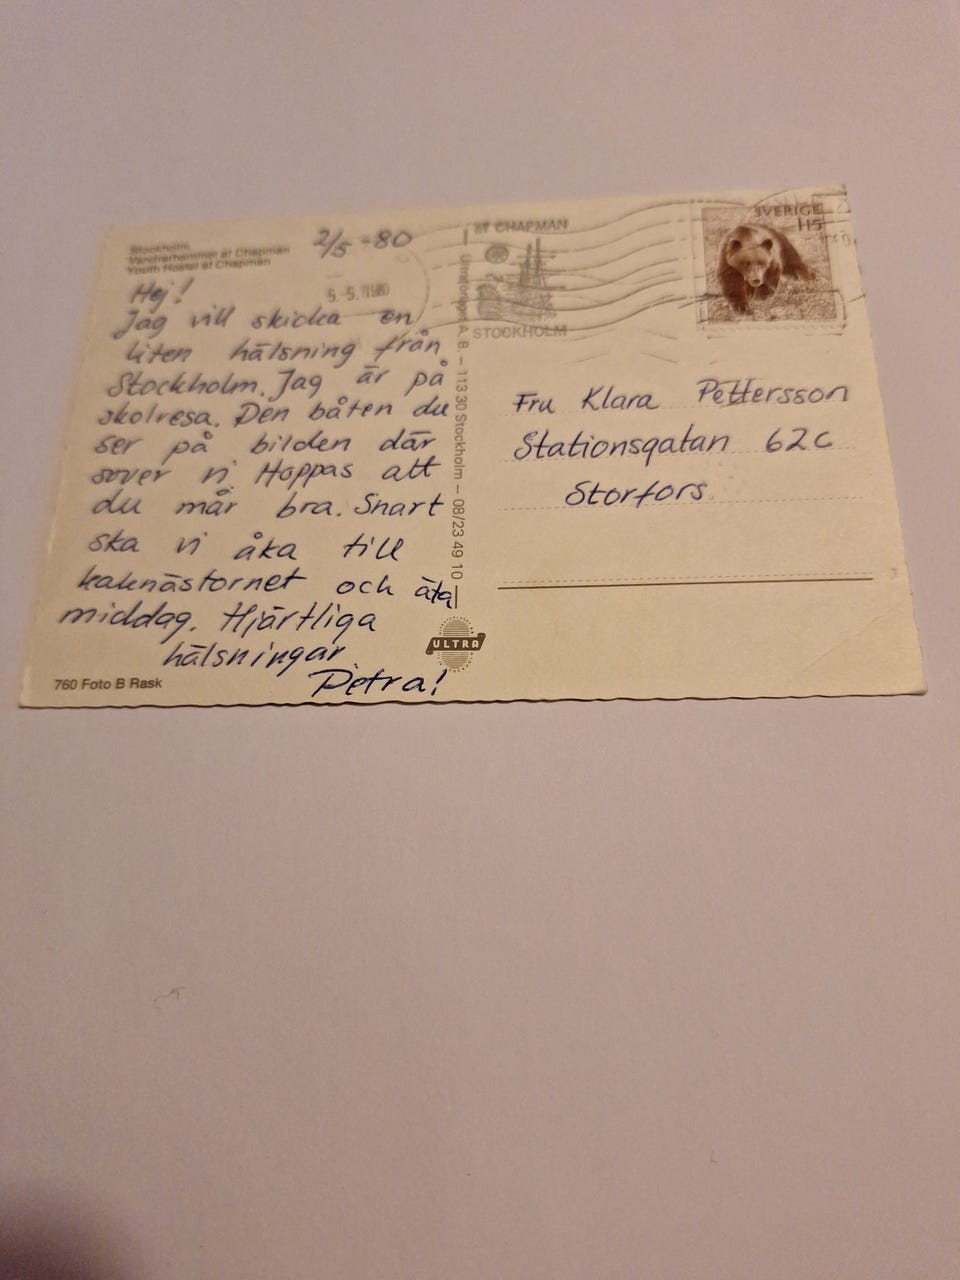 Stockholm.
Vandrarhemmet af Chapman
Youth Hostel af Chapman
2/5 -80
5.-5.1980
Hej!
Jag vill skicka en
liten hälsning från
Stockholm. Jag är på
skolresa. Den båten du
ser på bilden där
sover vi. Hoppas att
du mår bra. Snart
ska vi åka till
kaknästornet och äta
middag. Hjärtliga
hälsningar
Petra!
760 Foto B Rask
A.B. – 113 30 Stockholm – 08/23 49 10
ULTRA
AF CHAPMAN
STOCKHOLM
SVERIGE
115
Fru Klara Pettersson
Stationsgatan 62c
Storfors